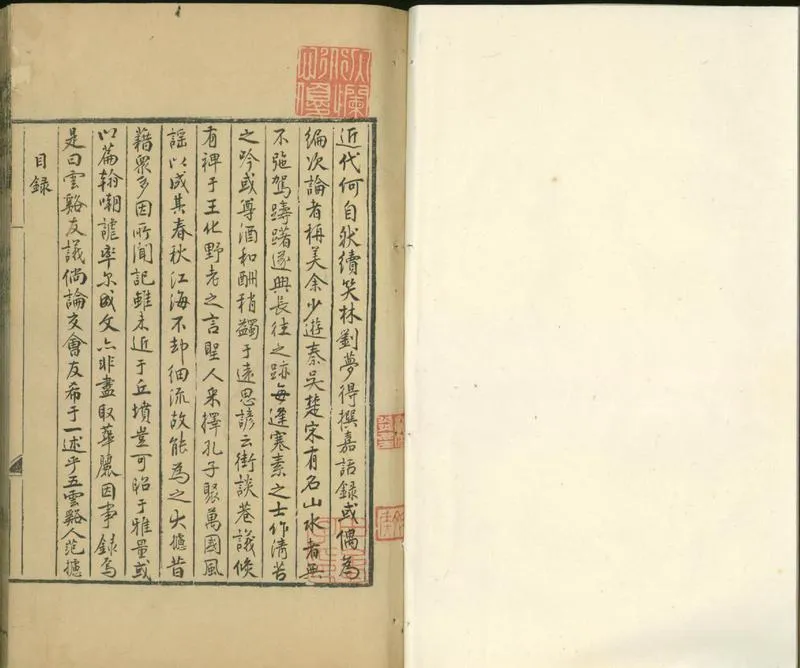 近代何自然續笑林劉夢得撰嘉話錄或偶為
編次論者稱美余少遊秦吳楚宋有名山水者無
不弛駕躊躇遂興長往之跡每逢寒素之士作清苦
之吟或尊酒和酬稍蠲于遠思諺云街談巷議倏
有裨于王化野老之言聖人采擇孔子聚萬國風
謠以成其春秋江海不却細流故能為之大攄昔
藉眾多因所聞記雖未近于丘墳豈可昭于雅量或
以篇翰嘲謔率尔成文亦非盡取華麗因事錄焉
是曰雲谿友議倘論交會友希于一述乎五雲谿人范攄
目錄